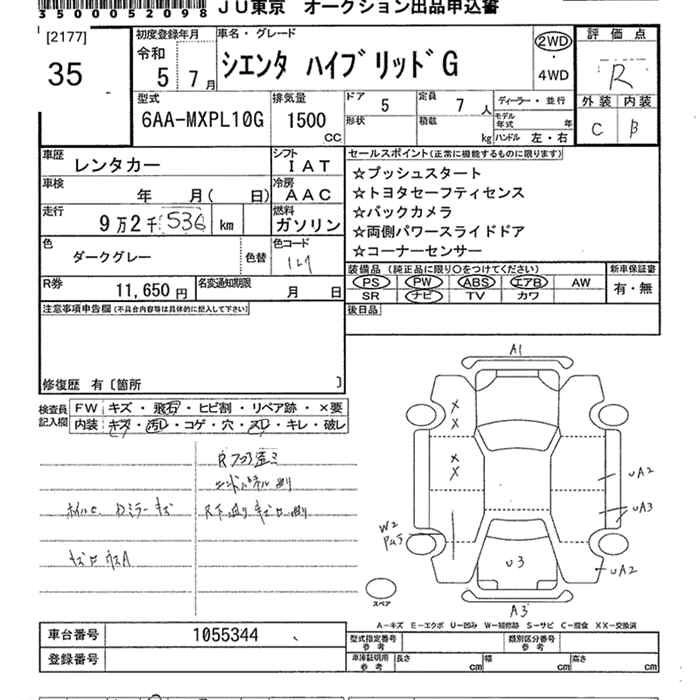 35000052098 JU東京 オークション出品申込書
[2177]
35
初度登録年月
令和
5 7月
車名・グレード
シエンタ ハイブリッドG
2WD
・
4WD
評価点
R
外装 内装
C B
型式
6AA-MXPL10G
排気量
1500 CC
ドア 5
形状
定員 7 人
積載 kg
ディーラー・並行
モデル年式 年
ハンドル 左・右
車歴 レンタカー
シフト IAT
車検 年 月( 日)
冷房 AAC
走行 9万2千536 km
燃料 ガソリン
色 ダークグレー 色替
色コード 1L7
R券 11,650円
名変通知期限 月 日
セールスポイント(正常に機能するものに限ります)
☆プッシュスタート
☆トヨタセーフティセンス
☆バックカメラ
☆両側パワースライドドア
☆コーナーセンサー
装備品(純正品に限り○をつけてください)
PS PW ABS エアB AW
SR ナビ TV カワ
新車保証書
有・無
後日品
注意事項申告欄(不具合内容等は具体的に記入して下さい)
修復歴 有〔箇所 〕
検査員記入欄
FW キズ・飛石・ヒビ割・リペア跡・×要
内装 キズ・汚レ・コゲ・穴・スレ・キレ・破レ
R下廻り
ホイルC ドミラーキズ
A1
UA2
UA3
W2
U3
UA2
A3
スペア
A-キズ E-エクボ U-凹み W-補修跡 S-サビ C-腐食 XX-交換済
車台番号 1055344
登録番号
型式指定番号 参考
類別区分番号 参考
車庫証明用 参考
長さ cm 幅 cm 高さ cm